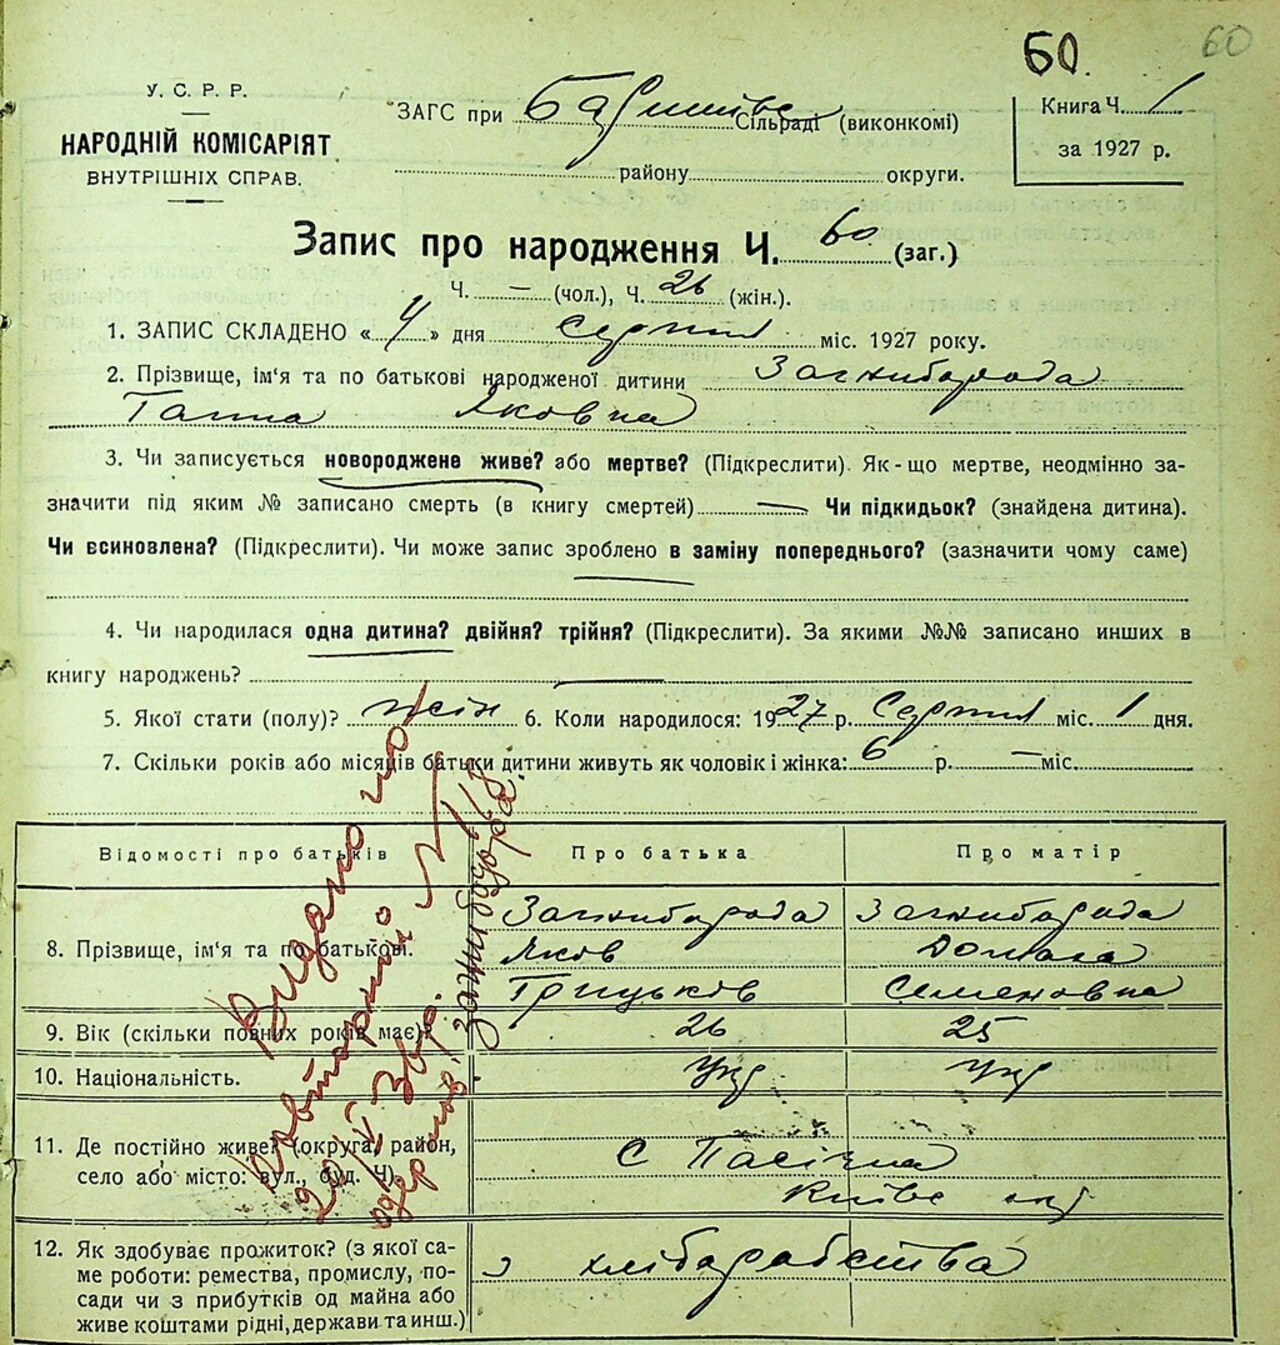 60.
60
У. С. Р. Р.
НАРОДНІЙ КОМІСАРІЯТ
ВНУТРІШНІХ СПРАВ.
ЗАГС при Баришівс Сільраді (виконкомі)
району округи.
Книга Ч. 1
за 1927 р.
Запис про народження Ч. 60 (заг.)
Ч. — (чол.), Ч. 26 (жін.).
1. ЗАПИС СКЛАДЕНО «4» дня Серпня міс. 1927 року.
2. Прізвище, ім‘я та по батькові народженої дитини Зажиборода
Ганна Яковна
3. Чи записується новороджене живе? або мертве? (Підкреслити). Як-що мертве, неодмінно за-
значити під яким № записано смерть (в книгу смертей) — Чи підкидьок? (знайдена дитина).
Чи всиновлена? (Підкреслити). Чи може запис зроблено в заміну попереднього? (зазначити чому саме)
—
4. Чи народилася одна дитина? двійня? трійня? (Підкреслити). За якими №№ записано инших в
книгу народжень? —
5. Якої стати (полу)? жін 6. Коли народилося: 1927 р. Серпня міс. 1 дня.
7. Скільки років або місяців батьки дитини живуть як чоловік і жінка: 6 р. — міс.
Відомості про батьків Про батька Про матір
8. Прізвище, ім‘я та по батькові. Зажиборода Зажиборода
Яков Домаха
Грицьков Семеновна
9. Вік (скільки повних років має)? 26 25
10. Національність. Укр Укр
11. Де постійно живе? (округа, район,
село або місто: вул., буд. Ч). С Пасічна
Київс окр
12. Як здобуває прожиток? (з якої са-
ме роботи: ремества, промислу, по-
сади чи з прибутків од майна або
живе коштами рідні, держави та инш.) з хліборобства
Видано
повторно